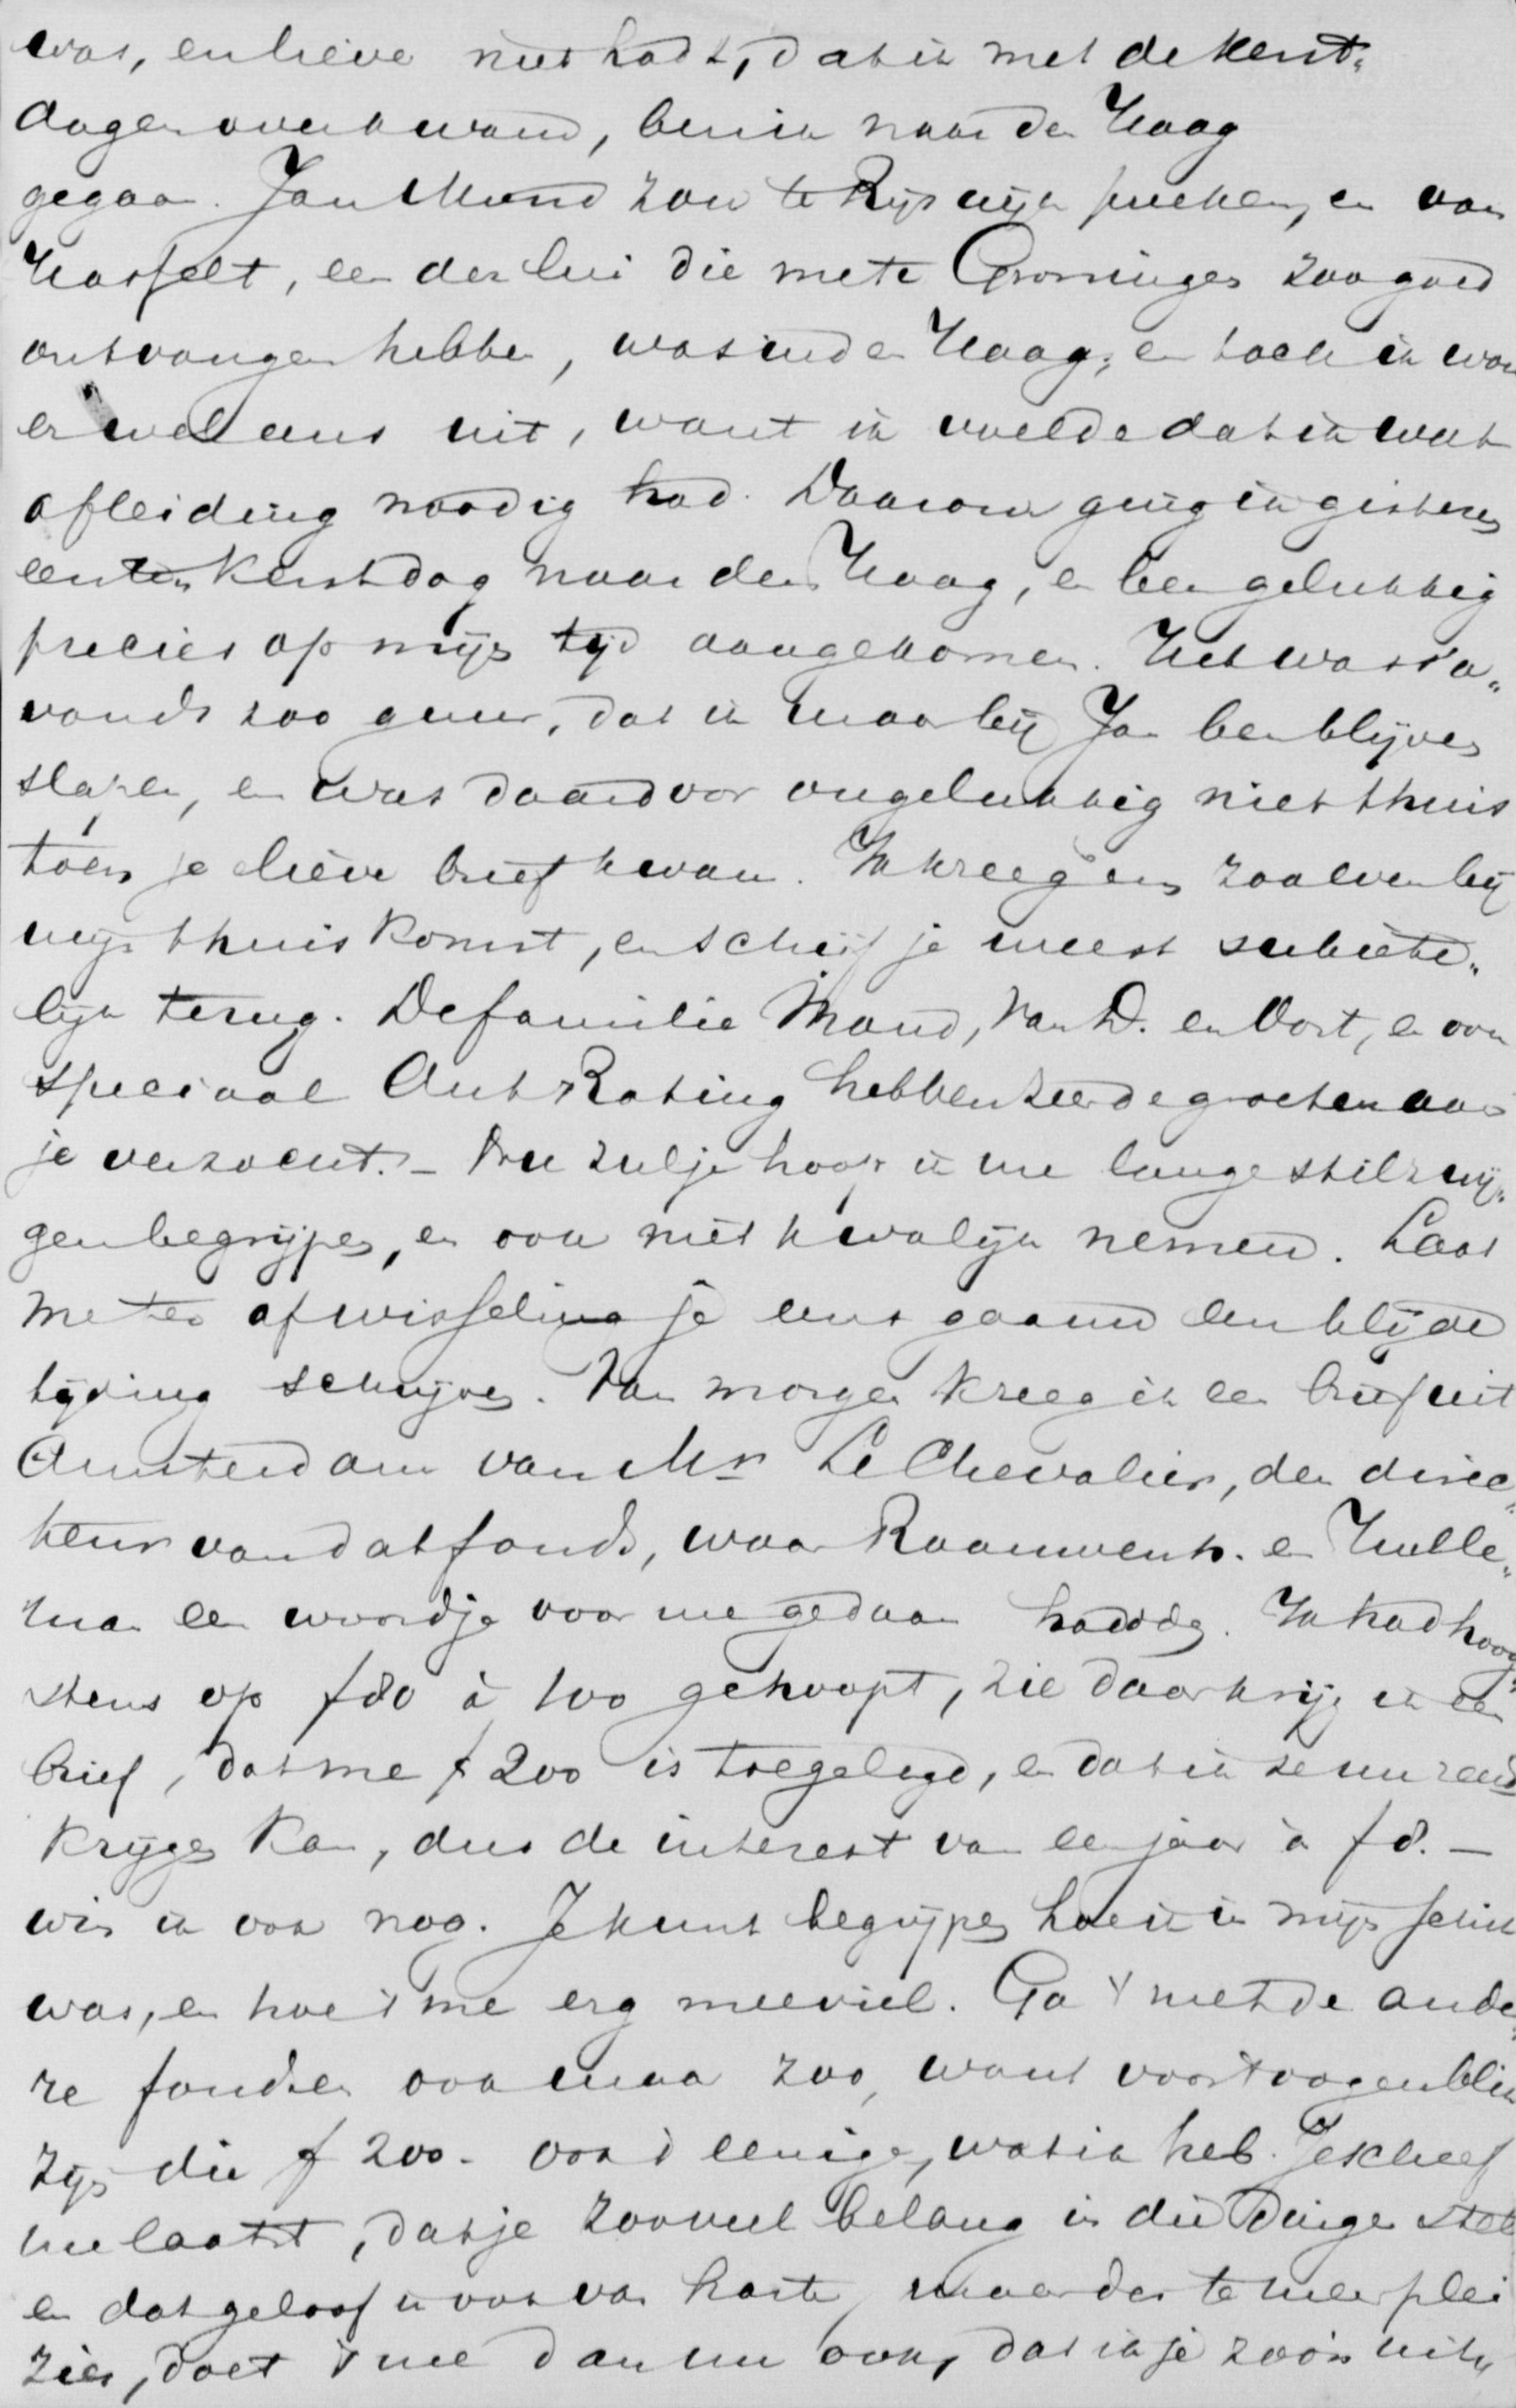 was, en lieve niet hadt, dat ik met de Kerst„
dagen overkwam, ben ik naar den Haag
gegaan. Jan Mond zou te Rijswijk preeken, en van
Hasselt, een der lui die me te Groningen zoo goed
ontvangen hebben, was in den Haag, en toch ik wou
er wel eens uit, want ik voelde dat ik wat
afleiding noodig had. Daarom ging ik gisteren
eersten Kerstdag naar den Haag, en ben gelukkig
precies op mijn tijd aangekomen. Het was 's a„
vonds zoo guur, dat ik maar bij Jan ben blijven
slapen, en was daardoor ongelukkig niet thuis
toen je lieve brief kwam. Ik kreeg 'em zooeven bij
mijn thuiskomst, en schrijf je meest subiete„
lijk terug. De familie Mond, van D. en Oort, en ook
speciaal Ant Rating hebben zeer de groeten aan
je verzocht. – Nu zul je hoop ik me lange stilzwij„
gen begrijpen, en ook niet kwalijk nemen. Laat
me ter afwisseling je eens gaauw een blijde
tijding schrijven. Van morgen kreeg ik een brief uit
Amsterdam van Mr Le Chevalier, den direc„
teur van dat fonds, waar Raauwenh. en Hulle„
man een woordje voor me gedaan hadden. Ik had hoog„
stens op f 80 à 100 gehoopt, zie daar krijg ik een
brief, dat me f 200 is toegelegd, en dat ik ze nu reeds
krijgen kan, dus de interest van een jaar à f 8. –
win ik ook nog. Je kunt begrijpen hoe ik in mijn schik
was, en hoe 't me erg meeviel. Ga 't met de ande„
re fondsen ook maar zoo, want voor 't oogenblik
zijn die f 200. – ook 't eenige, wat ik heb. Je schreef
me laatst, dat je zooveel belang in die dingen stelt
en dat geloof ik ook van harte, maar des te meer plei
zier, doet 't me dan nu ook, dat ik je zoo'n